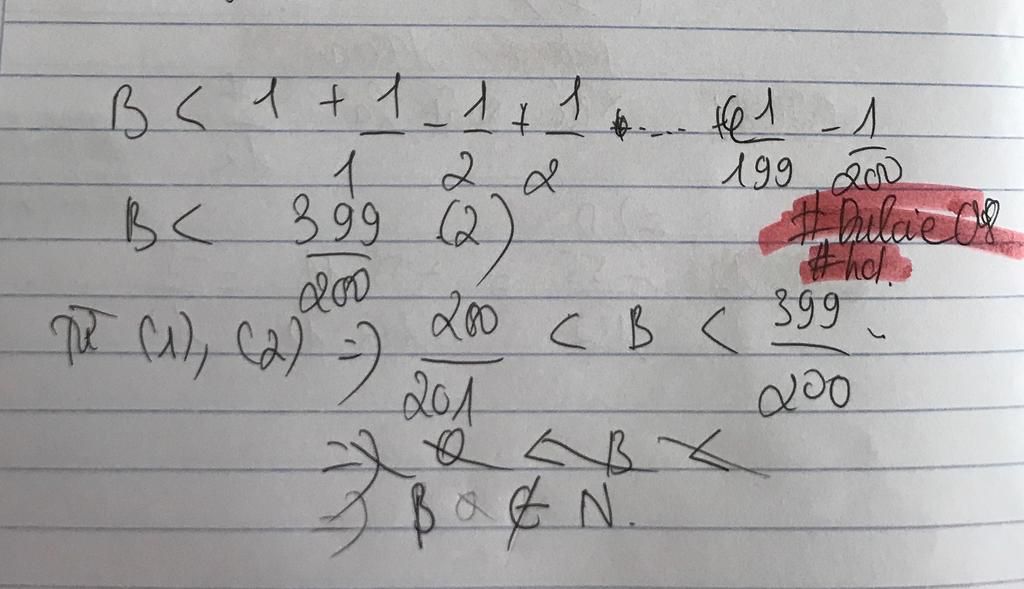 B < 1 + 1/1 - 1/2 + 1/2 + .... + 1/199 - 1/200
B < 399/200 (2)
#Dulcie08
#hd.
Từ (1), (2) => 200/201 < B < 399/200
=> 0 < B <
=> B ∉ N.